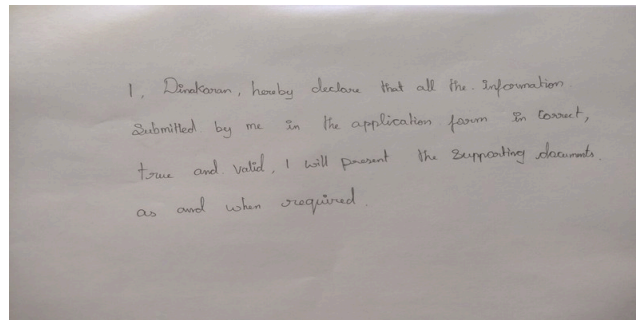 I, Dinakaran, hereby declare that all the Information
Submitted by me in the application form in Correct,
true and valid, I will present the supporting documents.
as and when required.